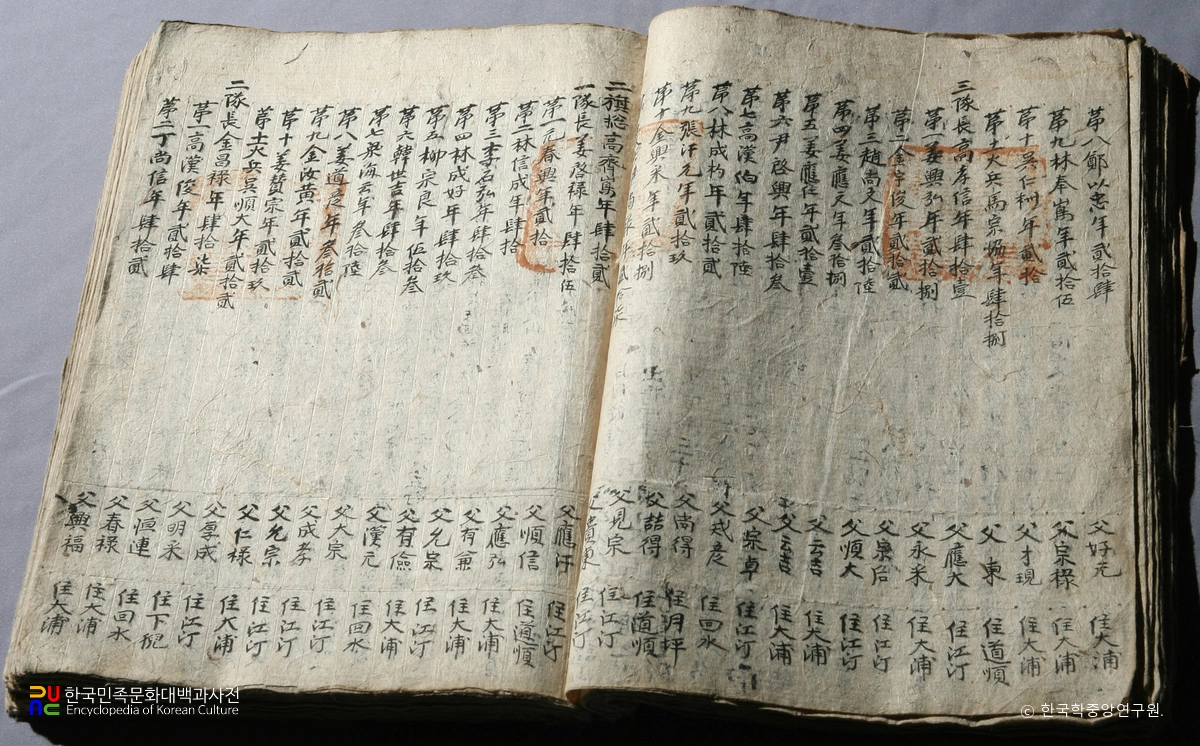 第八鄭以忠年貳拾肆 父好元 住大浦
第九林奉 年貳拾伍 父宗祿 住大浦
第十吳仁利年貳拾 父才現 住大浦
第十 火兵 宗 年肆拾捌 父 東 住道順
三隊長高孝信年肆拾壹 父應大 住江汀
第一姜興弘年貳拾捌 父永采 住大浦
第二金 俊年貳拾貳 父 住江汀
第三趙尚文年貳拾陸 父順大 住江汀
第四姜應文年叁拾捌 父云吉 住大浦
第五姜應 年貳拾壹 父云吉 住大浦
第六尹啓興年肆拾叁 父宗卓 住江汀
第七高漢伯年肆拾陸 父 住回水
第八林成 年貳拾貳 父尚得 住月坪
第九張汗元年貳拾玖 父喆得 住道順
第十金興采年貳拾捌 父見宗 住江汀
住江汀
二旗摠高齊 年肆拾貳 父應汗 住江汀
一隊長姜啓祿年肆拾伍 父順信 住道順
第一元春興年貳拾 父應弘 住大浦
第二林信成年肆拾 父有兼 住大浦
第三李石弘年肆拾叁 父允宗 住江汀
第四林成好年肆拾玖 父有儉 住大浦
第五柳宗良年伍拾叁 父漢元 住回水
第六韓世吉年肆拾叁 父大宗 住江汀
第七 海云年叁拾陸 父成孝 住江汀
第八姜道 年叁拾貳 父允宗 住江汀
第九金汝黃年貳拾貳 父仁祿 住大浦
第十姜贊宗年貳拾玖 父享成 住江汀
第十 火兵吳順大年貳拾貳 父明采 住下猊
二隊長金昌祿年肆拾柒 父恒連 住回水
第一高漢俊年貳拾肆 父春祿 住大浦
第二丁尚信年肆拾貳 父興福 住大浦
한국민족문화대백과사전
Encyclopedia of Korean Culture
© 한국학중앙연구원.